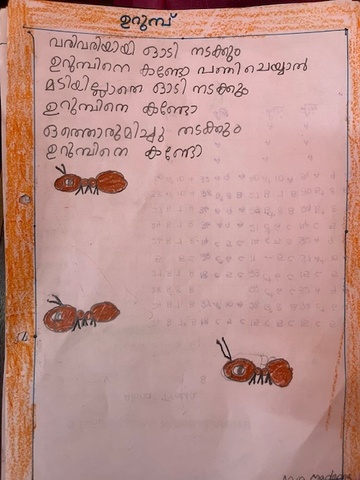 ഉറുമ്പ്
വരിവരിയായി ഓടി നടക്കും
ഉറുമ്പിനെ കണ്ടോ പണി ചെയ്യാൻ
മടിയില്ലാതെ ഓടി നടക്കും
ഉറുമ്പിനെ കണ്ടോ
ഒത്തൊരുമിച്ചു നടക്കും
ഉറുമ്പിനെ കണ്ടോ